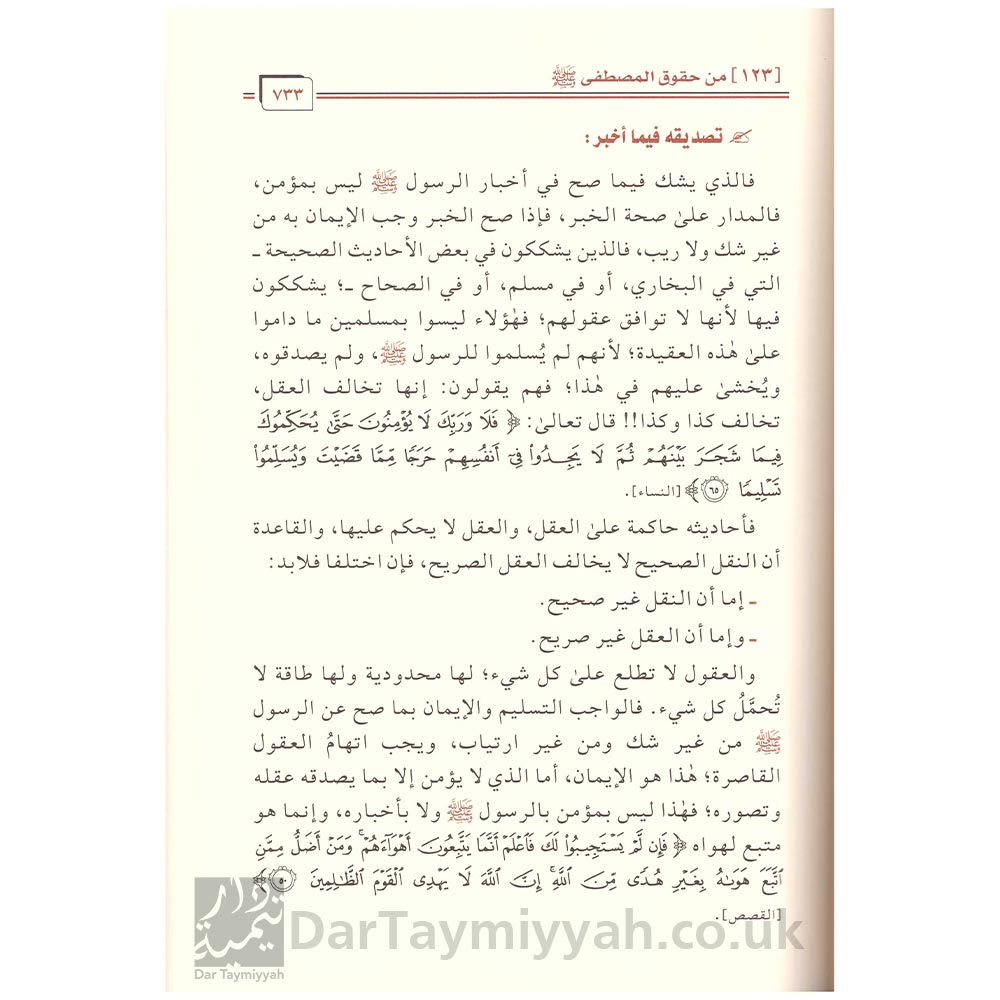 [١٢٣] من حقوق المصطفى ﷺ
٧٣٣
تصديقه فيما أخبر:
فالذي يشك فيما صح في أخبار الرسول ﷺ ليس بمؤمن،
فالمدار علىٰ صحة الخبر، فإذا صح الخبر وجب الإيمان به من
غير شك ولا ريب، فالذين يشككون في بعض الأحاديث الصحيحة ـ
التي في البخاري، أو في مسلم، أو في الصحاح ـ؛ يشككون
فيها لأنها لا توافق عقولهم؛ فهٰؤلاء ليسوا بمسلمين ما داموا
علىٰ هٰذه العقيدة؛ لأنهم لم يُسلموا للرسول ﷺ، ولم يصدقوه،
ويُخشىٰ عليهم في هٰذا؛ فهم يقولون: إنها تخالف العقل،
تخالف كذا وكذا!! قال تعالىٰ: ﴿ فَلَا وَرَبِّكَ لَا يُؤْمِنُونَ حَتَّىٰ يُحَكِّمُوكَ
فِيمَا شَجَرَ بَيْنَهُمْ ثُمَّ لَا يَجِدُوا۟ فِىٓ أَنفُسِهِمْ حَرَجًا مِّمَّا قَضَيْتَ وَيُسَلِّمُوا۟
تَسْلِيمًا ٦٥﴾ [النساء].
فأحاديثه حاكمة علىٰ العقل، والعقل لا يحكم عليها، والقاعدة
أن النقل الصحيح لا يخالف العقل الصريح، فإن اختلفا فلابد:
ـ إما أن النقل غير صحيح.
ـ وإما أن العقل غير صريح.
والعقول لا تطلع علىٰ كل شيء؛ لها محدودية ولها طاقة لا
تُحمَّلُ كل شيء. فالواجب التسليم والإيمان بما صح عن الرسول
ﷺ من غير شك ومن غير ارتياب، ويجب اتهامُ العقول
القاصرة؛ هٰذا هو الإيمان، أما الذي لا يؤمن إلا بما يصدقه عقله
وتصوره؛ فهٰذا ليس بمؤمن بالرسول ﷺ ولا بأخباره، وإنما هو
متبع لهواه ﴿ فَإِن لَّمْ يَسْتَجِيبُوا۟ لَكَ فَٱعْلَمْ أَنَّمَا يَتَّبِعُونَ أَهْوَآءَهُمْ ۚ وَمَنْ أَضَلُّ مِمَّنِ
ٱتَّبَعَ هَوَىٰهُ بِغَيْرِ هُدًى مِّنَ ٱللَّهِ ۚ إِنَّ ٱللَّهَ لَا يَهْدِى ٱلْقَوْمَ ٱلظَّٰلِمِينَ ٥٠﴾
[القصص].
دار تيمية
Dar Taymiyyah
DarTaymiyyah.co.uk